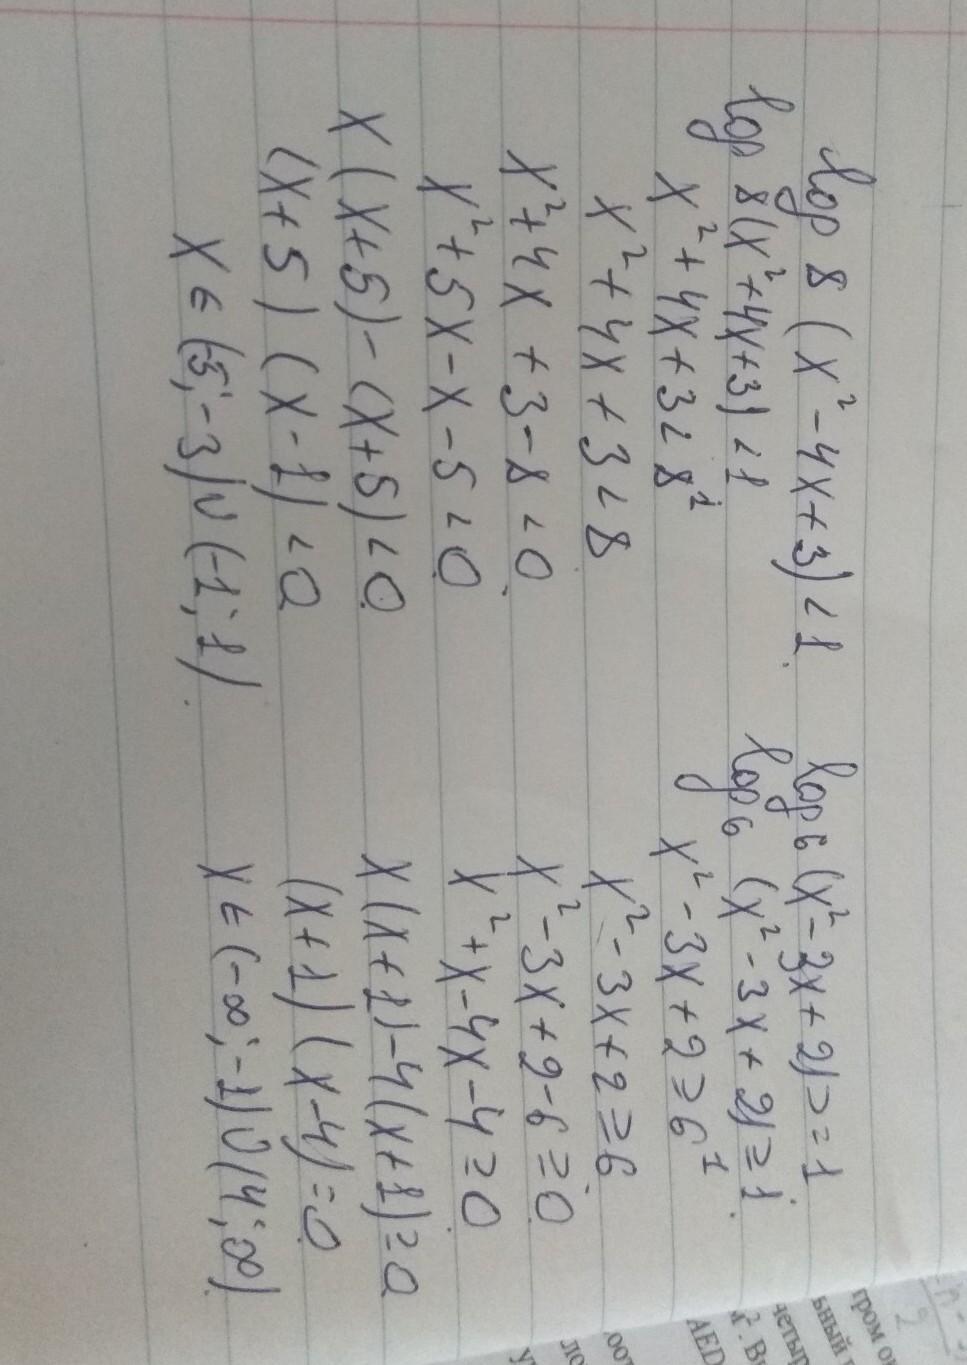 log 8 (x² - 4x + 3) < 1
log 8 (x² + 4x + 3) < 1
x² + 4x + 3 < 8¹
x² + 4x + 3 < 8
x² + 4x + 3 - 8 < 0
x² + 5x - x - 5 < 0
x (x + 5) - (x + 5) < 0
(x + 5) (x - 1) < 0
x ∈ (-5; -3) ∪ (-1; 1)
log 6 (x² - 3x + 2) > = 1
log 6 (x² - 3x + 2) ≥ 1
x² - 3x + 2 ≥ 6¹
x² - 3x + 2 ≥ 6
x² - 3x + 2 - 6 ≥ 0
x² + x - 4x - 4 ≥ 0
x (x + 1) - 4 (x + 1) ≥ 0
(x + 1) (x - 4) = 0
x ∈ (-∞; -1) ∪ (4; ∞)
тром
ьный
четыр
AED